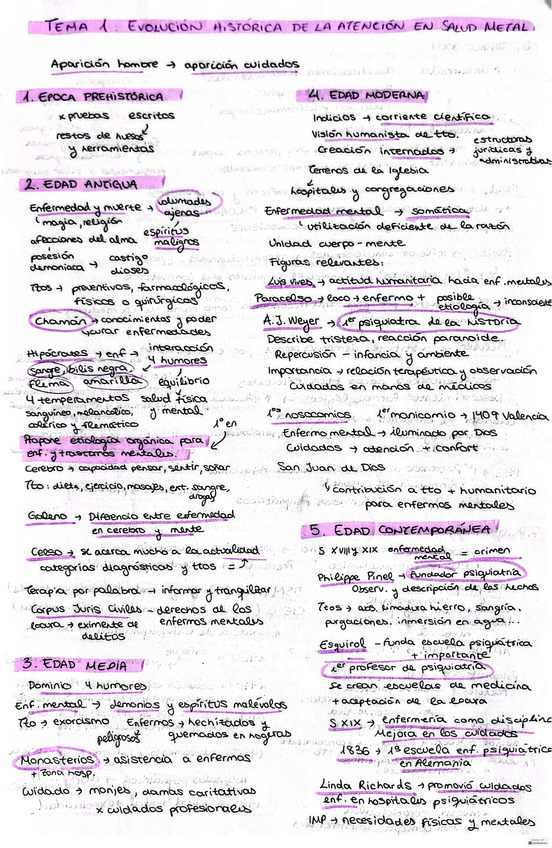 TEMA 1: EVOLUCIÓN HISTÓRICA DE LA ATENCIÓN EN SALUD METAL
Aparición hombre → aparición cuidados
1. EPOCA PREHISTÓRICA
x pruebas escritos
restos de huesos
y herramientas
2. EDAD ANTIGUA
Enfermedad y muerte → volumades
ajenas
magia, religión
espíritus
afecciones del alma
malignos
posesión
demoniaca → castigo
dioses
Ttos → preventivos, farmacológicos,
físicos o quirúrgicos
Chamán → conocimientos y poder
curar enfermedades
Hipócrases → enf → interacción
4 humores
sangre, bilis negra
flema, amarilla
equilibrio
4 temperamentos salud física
sanguíneo, melancólico, y mental
colérico y flemático
1º en
Propone etiología orgánica para
enf. y trastornos mentales.
Cerebro → capacidad pensar, sentir, soñar
Tto: dieta, ejercicio, masajes, ext. sangre,
drogas
Galeno → Diferencia entre enfermedad
en cerebro y mente
Celso → se acerca mucho a la actualidad
categorías diagnósticos y ttos =
Terapia por palabra → informar y tranquilizar
Corpus Juris Civiles - derechos de los
locura → eximente de enfermos mentales
delitos
3. EDAD MEDIA
Dominio 4 humores
Enf. mental → demonios y espíritus malévolos
Tto → exorcismo Enfermos → hechizados y
peligrosos quemados en hogueras
Monasterios → asistencia a enfermas
+ zona hosp.
Cuidado → monjes, damas caritativas
x cuidados profesionales
4. EDAD MODERNA
Indicios → corriente científica
Visión humanista de tto.
Creación internados → estructuras
jurídicas y
administrativas
Terrenos de la Iglesia
hospitales y congregaciones
Enfermedad mental → somática
utilización deficiente de la razón
Unidad cuerpo - mente
Figuras relevantes:
Luis vives → actitud humanitaria hacia enf. mentales
Paracelso → loco → enfermo + posible
etiología → inconsciente
A.J. Weyer → 1er psiquiatra de la historia
Describe tristeza, reacción paranoide.
Repercusión - infancia y ambiente
Importancia → relación terapéutica y observación
Cuidados en manos de médicos
1os nosocomios 1er manicomio → 1409 Valencia
Enfermo mental → iluminado por Dios
Cuidados → atención + confort
San Juan de Dios
contribución a tto + humanitario
para enfermos mentales
5. EDAD CONTEMPORÁNEA
S XVIII y XIX enfermedad
mental = crimen
Philippe Pinel → fundador psiquiatría
Observ. y descripción de los hechos
Ttos → limadura hierro, sangría,
purgaciones, inmersión en agua...
Esquirol - funda escuela psiquiátrica
+ importante
1er profesor de psiquiatría
se crean escuelas de medicina
+ aceptación de la locura
S XIX → enfermería como disciplina
Mejora en los cuidados
1836 → 1ª escuela enf. psiquiátrica
en Alemania
Linda Richards → promovió cuidados
enf. en hospitales psiquiátricos
IMP → necesidades físicas y mentales